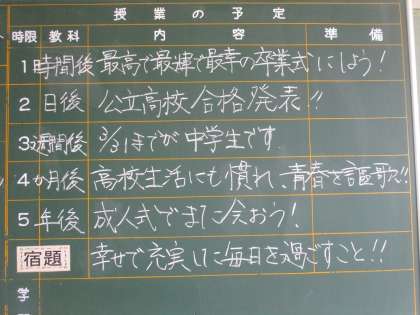 授業の予定
時限 教科 内容 準備
1 時間後 最高で最輝で最幸の卒業式にしよう!
2 日後 公立高校合格発表!!
3 週間後 3/31までが中学生です
4 か月後 高校生活にも慣れ、青春を謳歌!!
5 年後 成人式でまた会おう!
宿題 幸せで充実した毎日を過ごすこと!!
学